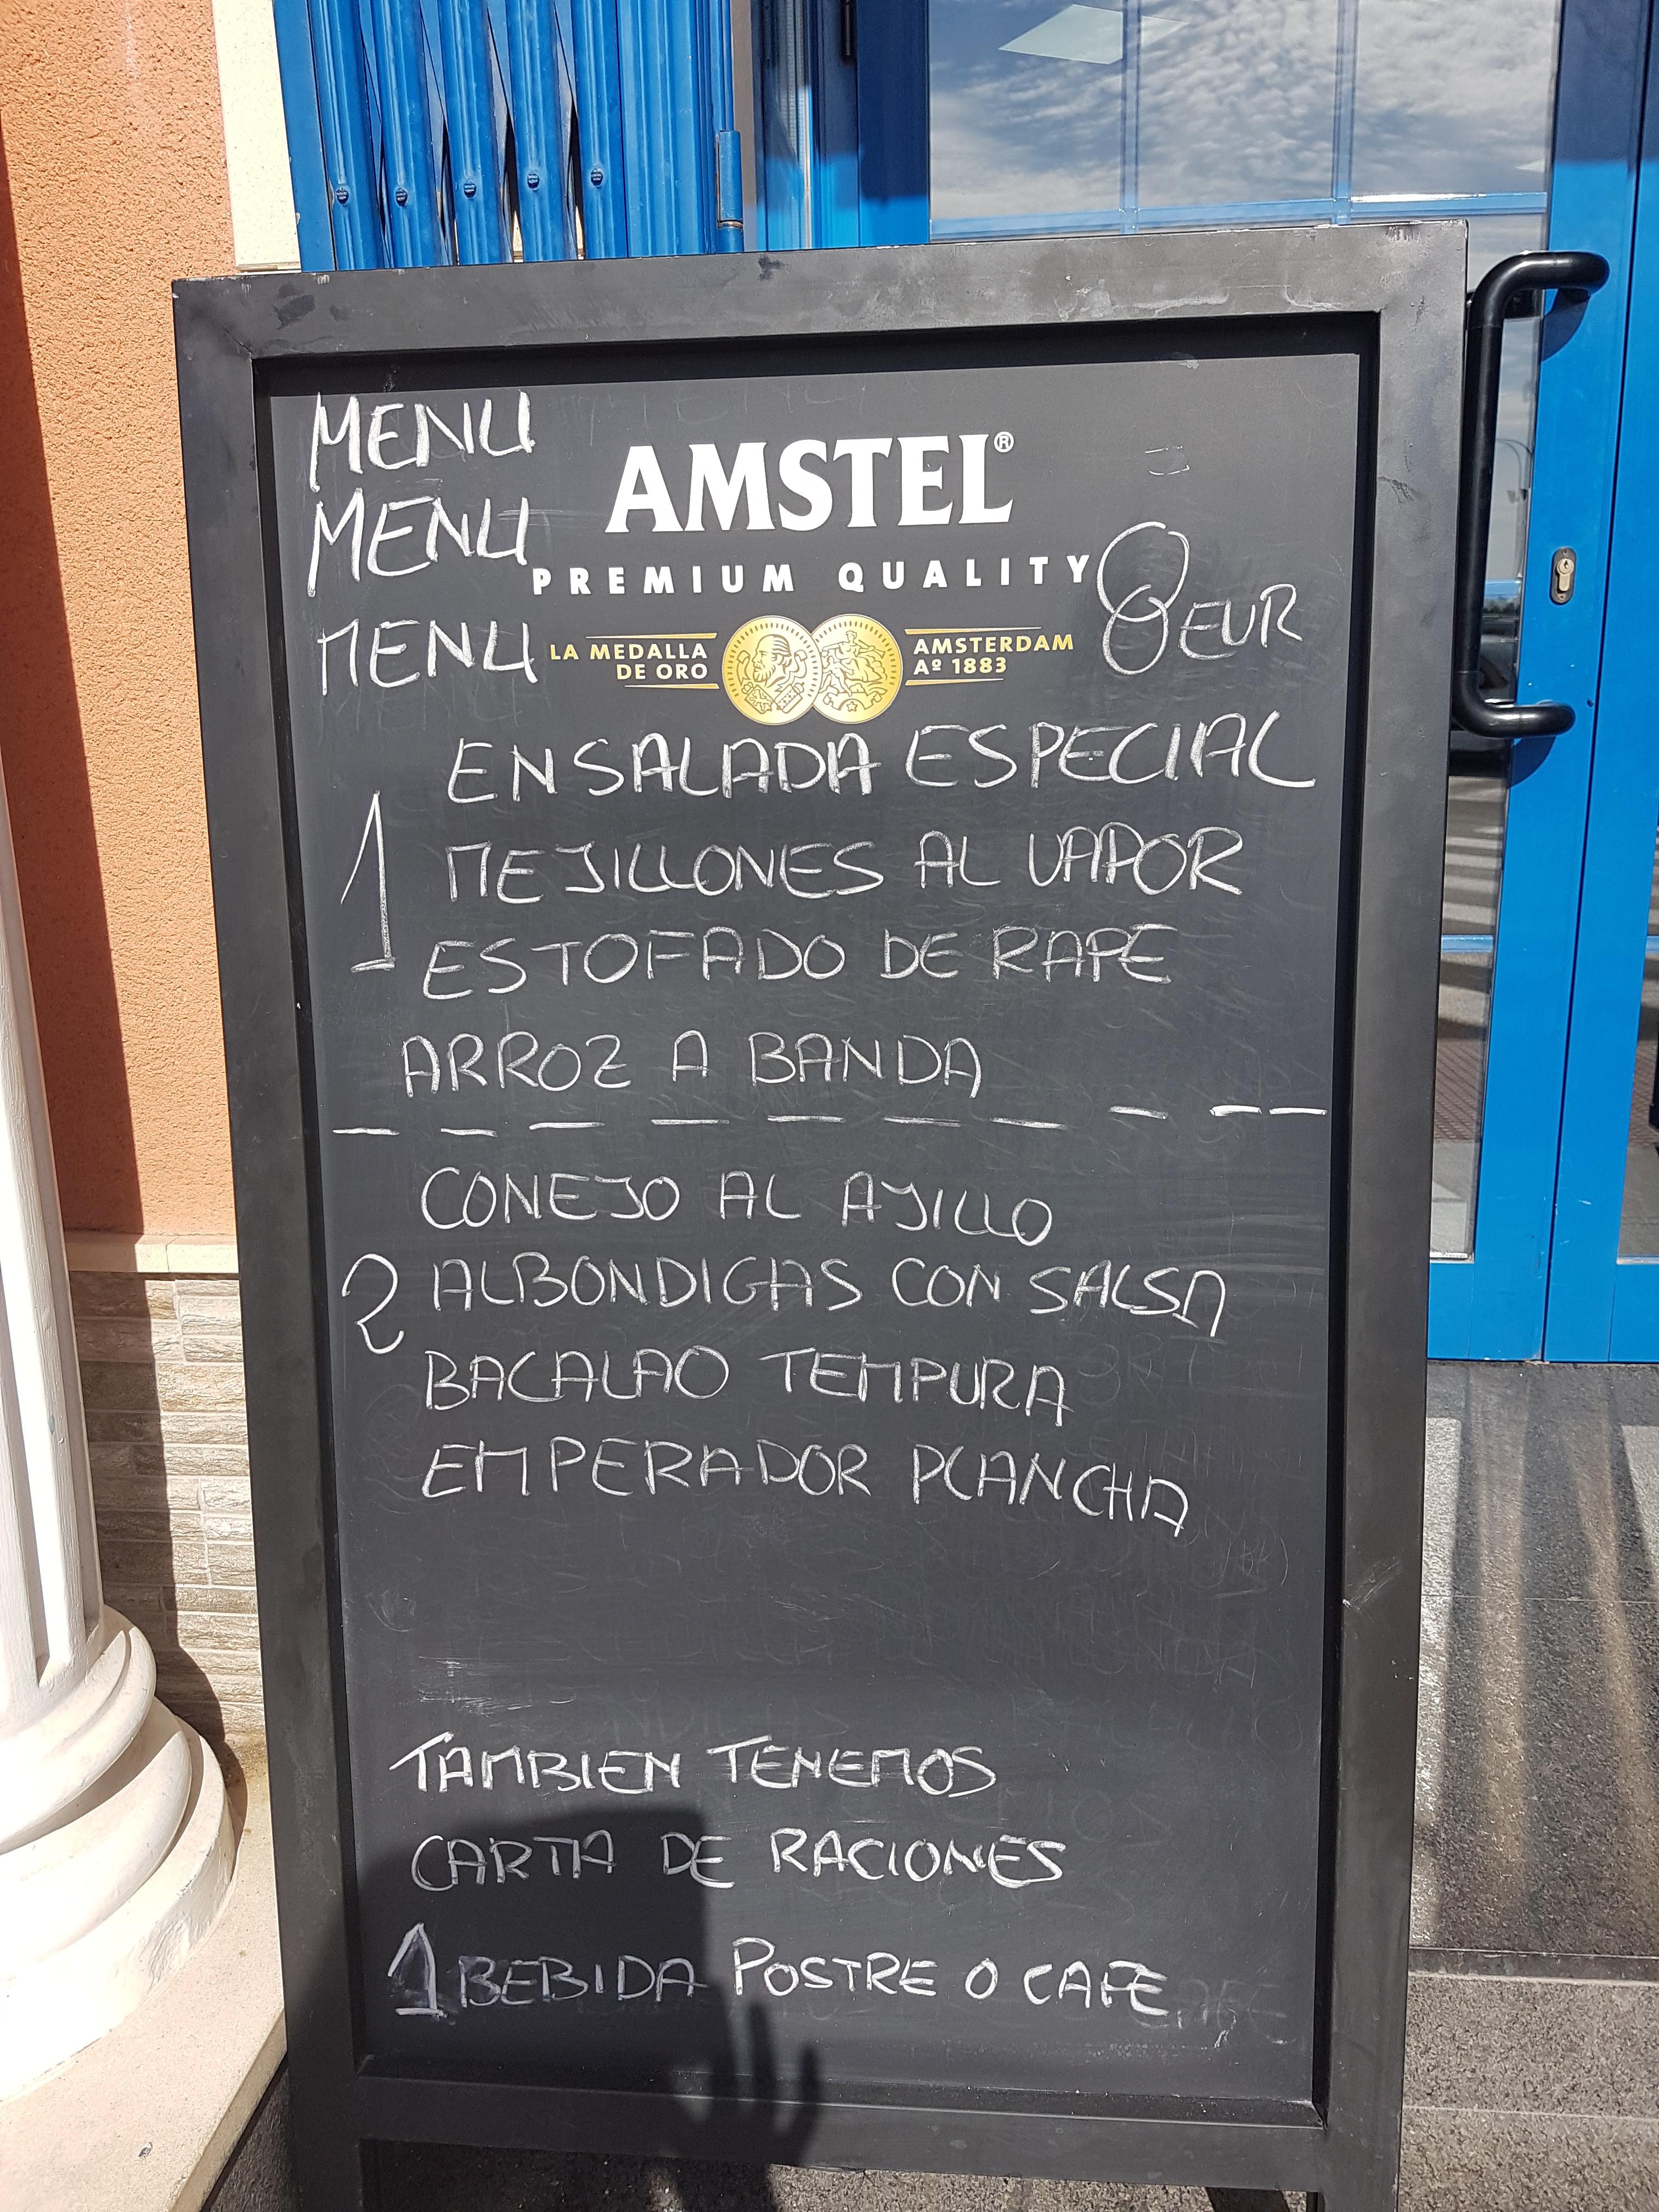 MENU
MENU
MENU
AMSTEL®
PREMIUM QUALITY
LA MEDALLA
DE ORO
AMSTERDAM
Aº 1883
8 EUR
1
ENSALADA ESPECIAL
MEJILLONES AL VAPOR
ESTOFADO DE RAPE
ARROZ A BANDA
2
CONEJO AL AJILLO
ALBONDIGAS CON SALSA
BACALAO TEMPURA
EMPERADOR PLANCHA
TAMBIEN TENEMOS
CARTA DE RACIONES
1 BEBIDA POSTRE O CAFE